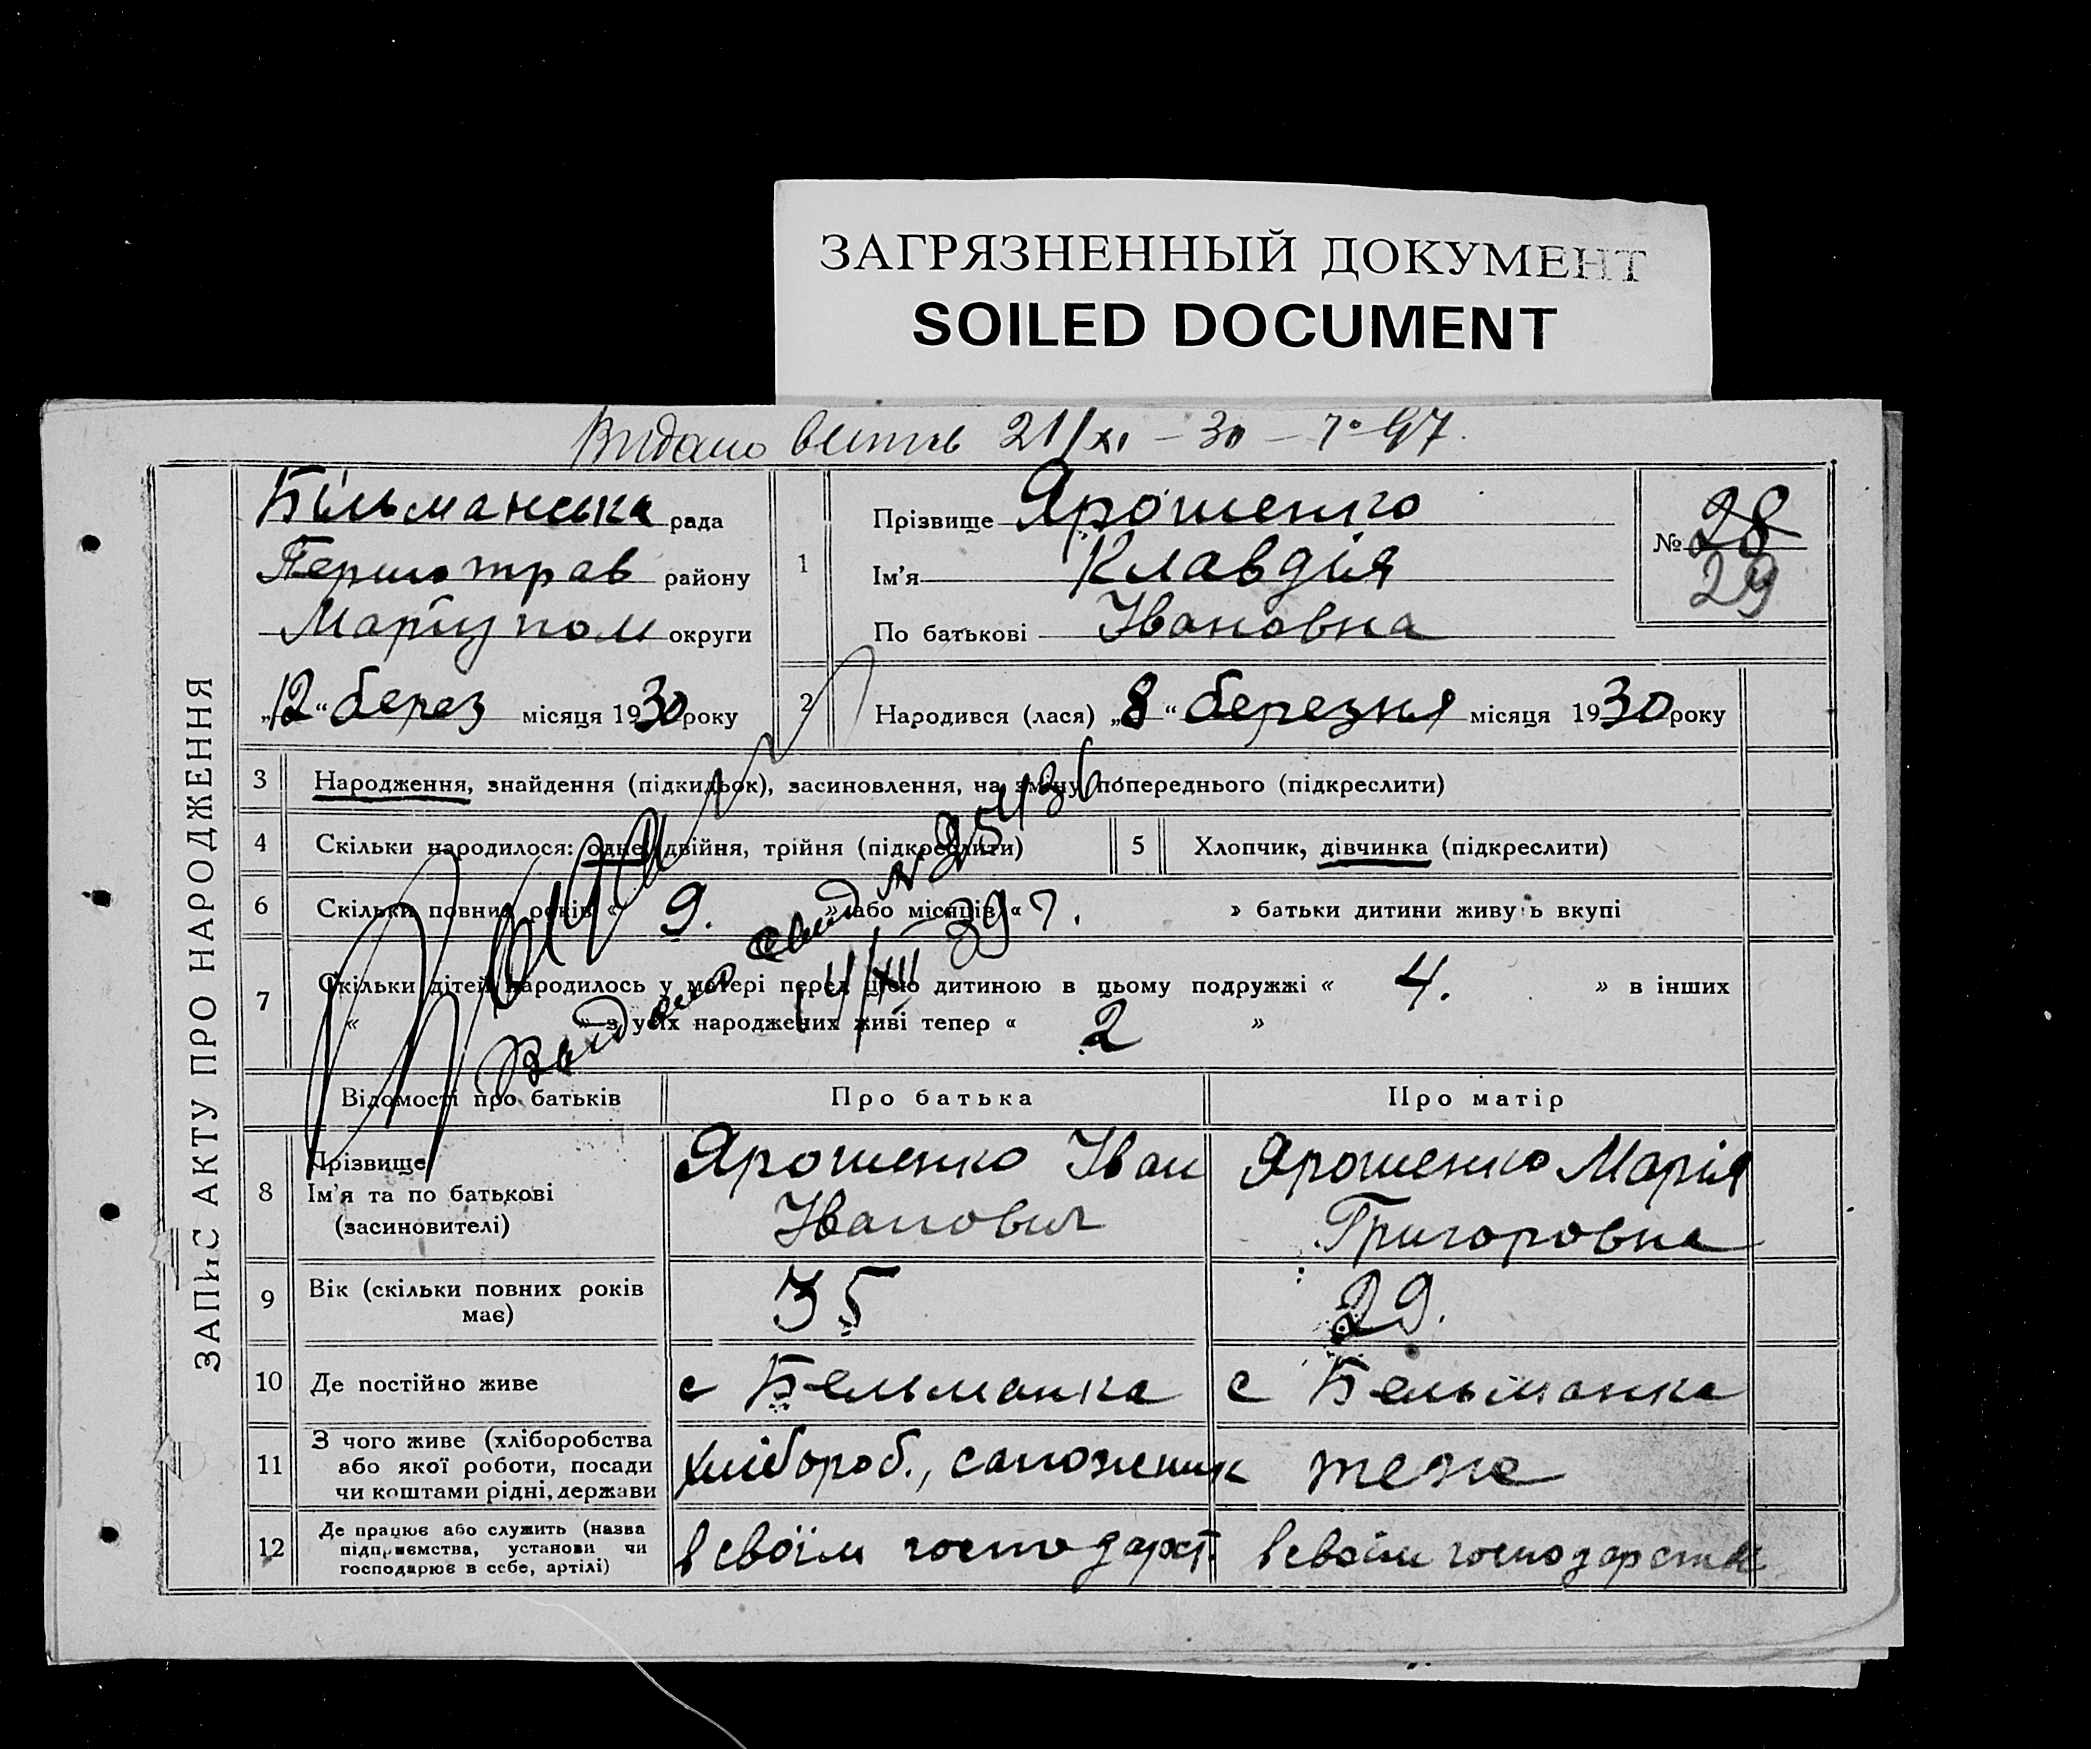 ЗАГРЯЗНЕННЫЙ ДОКУМЕНТ
SOILED DOCUMENT
Видано 21/XI – 30 – 97.
ЗАПИС АКТУ ПРО НАРОДЖЕННЯ
Більманська рада
Першотрав району
Маріупол округи
„12“ берез місяця 1930 року
1
Прізвище Ярошенко
Ім'я Клавдія
По батькові Івановна
№ 28
29
2 Народився (лася) „8“ березня місяця 1930 року
3 Народження, знайдення (підкидьок), засиновлення, на зміну попереднього (підкреслити)
4 Скільки народилося: одне, двійня, трійня (підкреслити) 5 Хлопчик, дівчинка (підкреслити)
6 Скільки повних років « 9. » або місяців « » батьки дитини живуть вкупі
7 Скільки дітей народилось у матері перед цією дитиною в цьому подружжі « 4. » в інших
« » з усіх народжених живі тепер « 2 »
Відомості про батьків Про батька Про матір
8 Прізвище
Ім'я та по батькові
(засиновителі)
Ярошенко Іван
Іванович
Ярошенко Марія
Григоровна
9 Вік (скільки повних років
має)
35 29.
10 Де постійно живе с Бельманка с Бельманка
11 З чого живе (хліборобства
або якої роботи, посади
чи коштами рідні, держави
хлібороб., сапожник теже
12 Де працює або служить (назва
підприємства, установи чи
господарює в себе, артілі)
в своїм господарст. в своїм господарстві